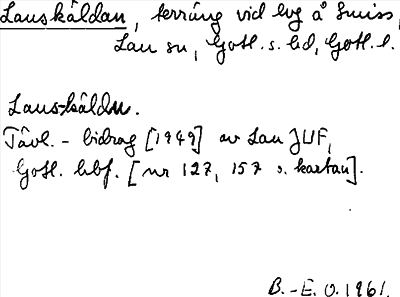 Lauskäldan, terräng vid lvg å Smiss,
Lau sn, Gotl. s. hd, Gotl. l.
Lauskäldu.
Tävl.-bidrag [1949] av Lau JUF,
Gotl. hbf. [nr 127, 157 s. kartan].
B.-E. O. 1961.